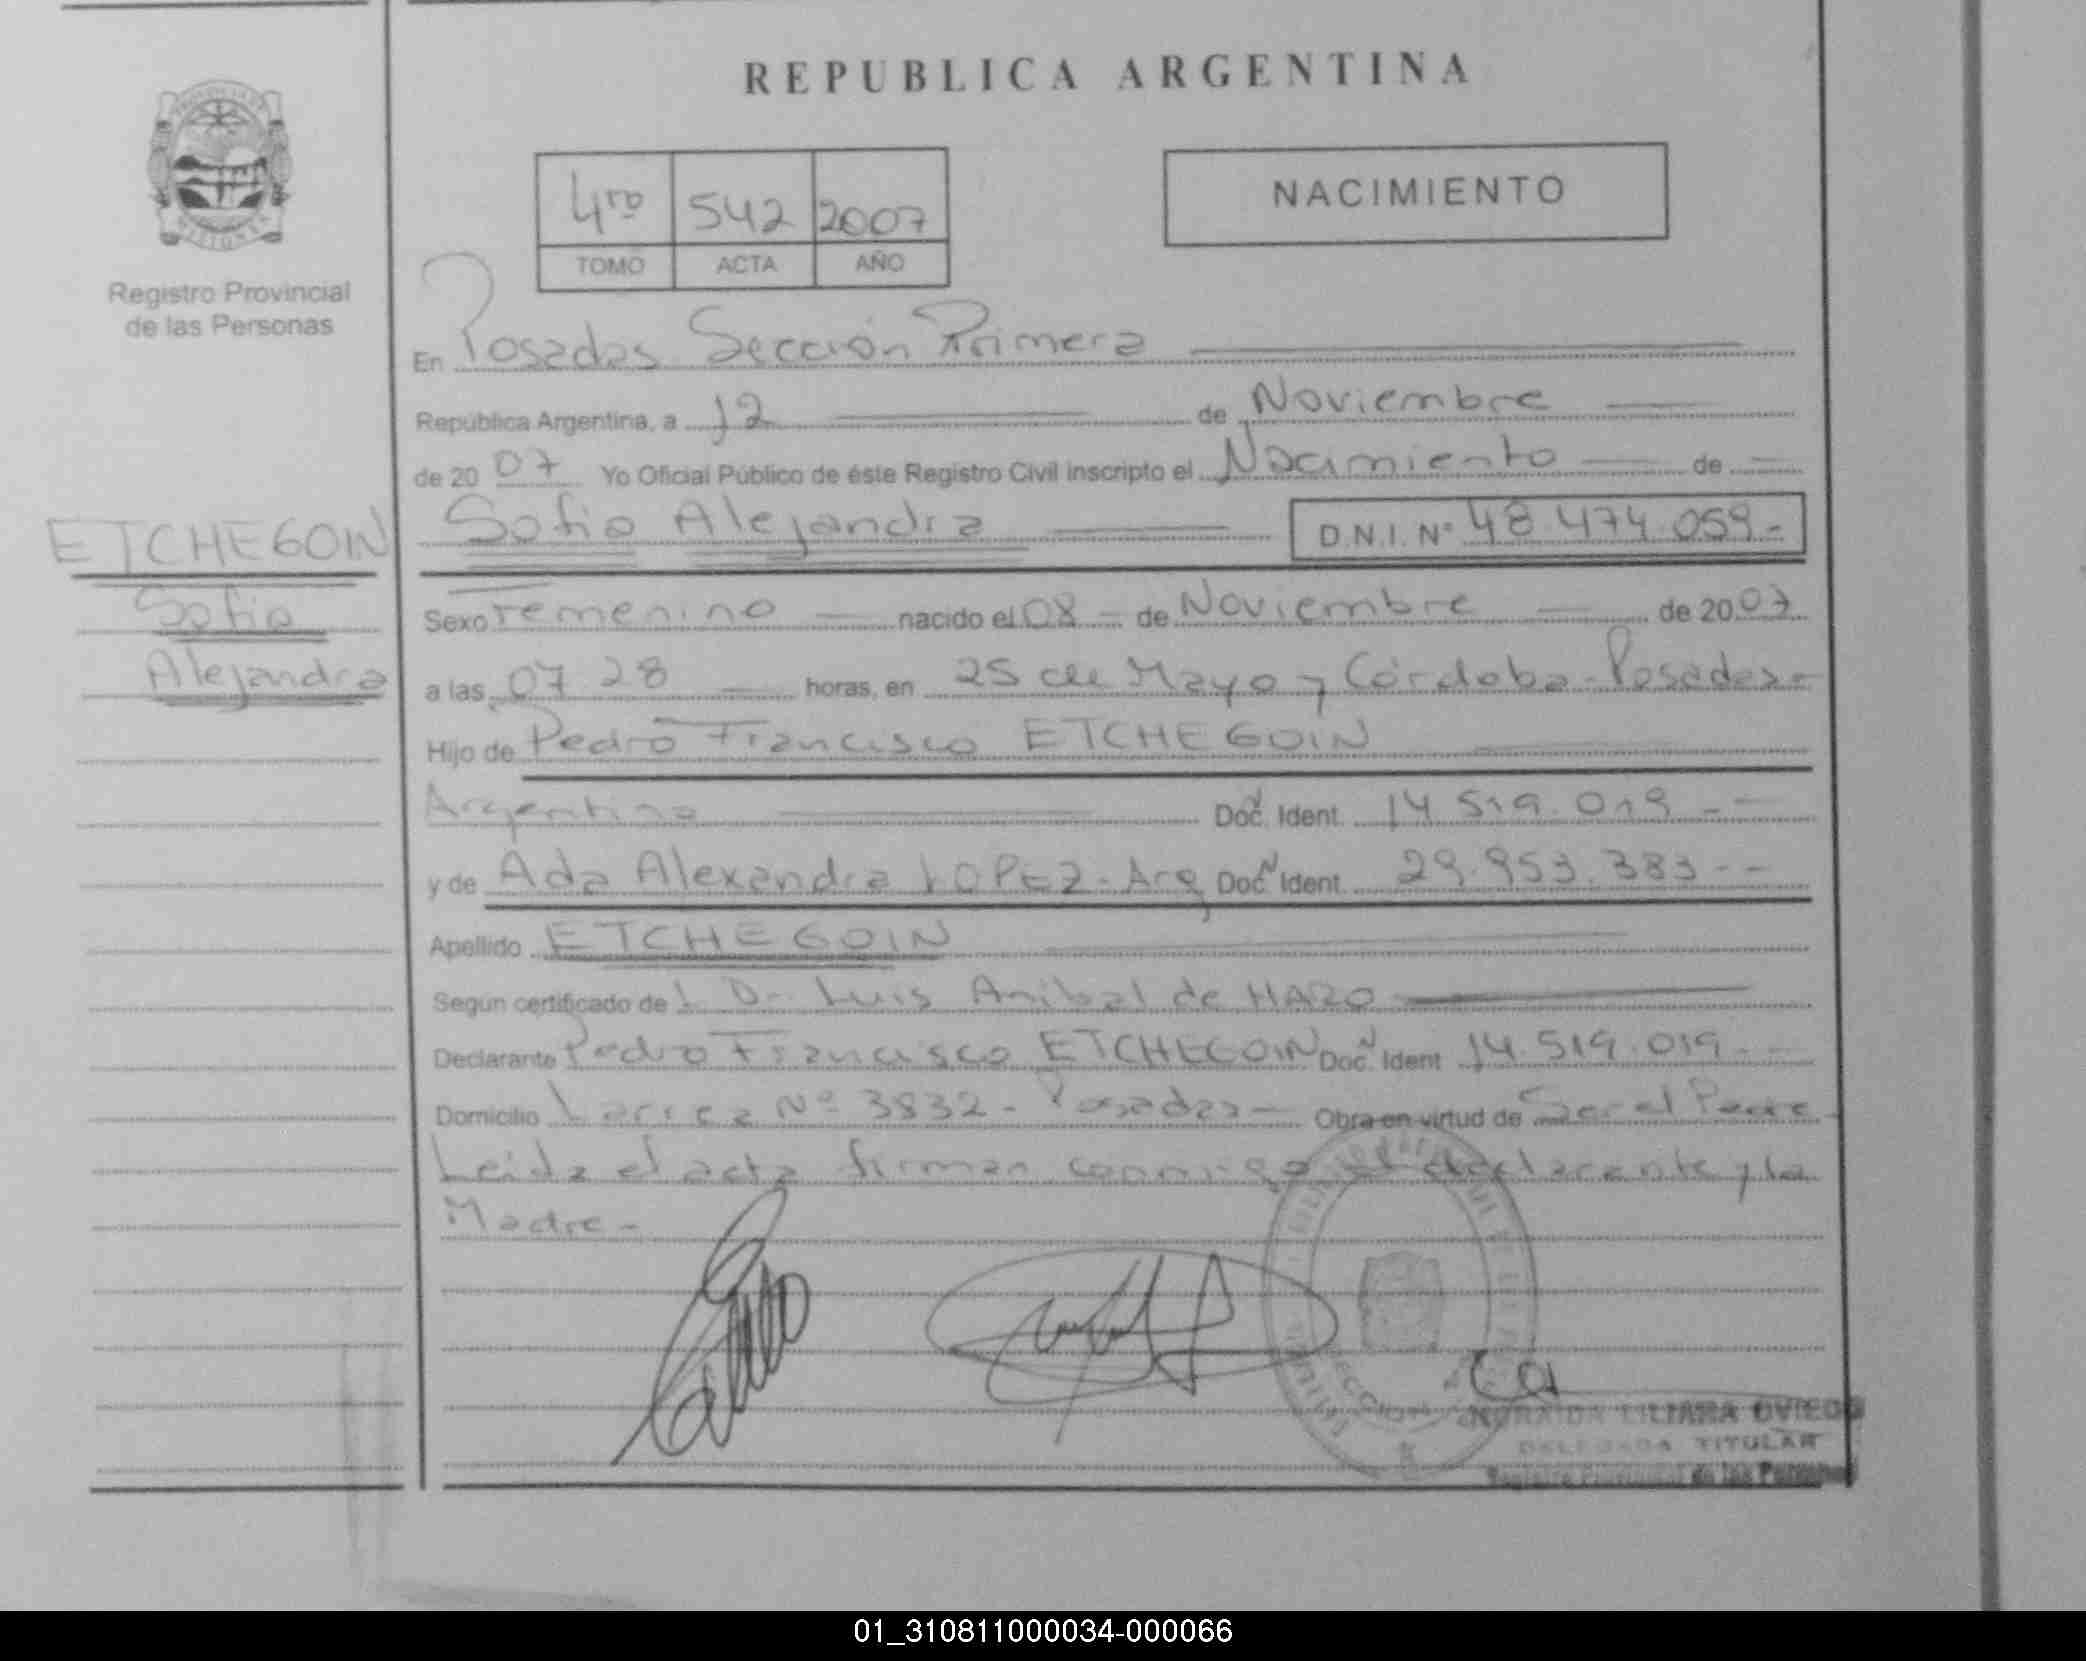 REPUBLICA ARGENTINA
PROVINCIA DE
MISIONES
Registro Provincial
de las Personas
4ro 542 2007
TOMO ACTA AÑO
NACIMIENTO
En Posadas Sección Primera
República Argentina, a 12 de Noviembre
de 2007 Yo Oficial Público de éste Registro Civil inscripto el Nacimiento de
Sofia Alejandra D.N.I. Nº 48.474.059.-
ETCHEGOIN
Sofia
Alejandra
Sexo Femenino nacido el 08 - de Noviembre de 2007
a las 07 28 horas, en 25 de Mayo y Córdoba - Posadas -
Hijo de Pedro Francisco ETCHEGOIN
Argentino Doc. Ident. 14.519.019 - -
y de Ada Alexandra LOPEZ - Arg Doc. Ident. 29.953.383 - -
Apellido ETCHEGOIN
Según certificado del Dr. Luis Anibal de HARO
Declarante Pedro Francisco ETCHEGOIN Doc. Ident 14.519.019 - -
Domicilio Nº 3832 - Posadas - Obra en virtud de Ser el Padre -
Leida el acta firman conmigo el declarante y la
Madre -
LILIANA OVIEDO
DELEGADA TITULAR
Registro Provincial de las Personas
01_310811000034-000066